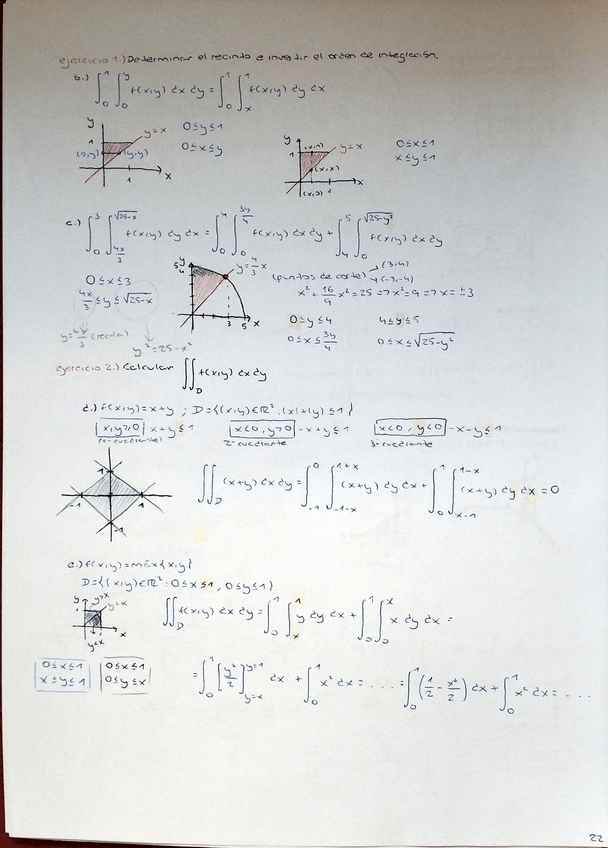 ejercicio 1.) Determinar el recinto e invertir el orden de integración.
b.) ∫₀¹ ∫₀ʸ f(x,y) dx dy = ∫₀¹ ∫ₓ¹ f(x,y) dy dx
y 1 y=x (0,y) (y,y) 1 x
0≤y≤1
0≤x≤y
y 1 (x,1) y=x (x,x) (x,0) 1 x
0≤x≤1
x≤y≤1
c.) ∫₀³ ∫_{4x/3}^{√25-x} f(x,y) dy dx = ∫₀⁴ ∫₀^{3y/4} f(x,y) dx dy + ∫₄⁵ ∫₀^{√25-y²} f(x,y) dx dy
0≤x≤3
4x/3 ≤y≤ √25-x
y=4x/3 (recta)
y²=25-x²
y 5 4 y=4/3 x 3 5 x
(puntos de corte) → (3,4) → (-3,-4)
x²+16/9 x²=25 => x²=9 => x=±3
0≤y≤4 4≤y≤5
0≤x≤3y/4 0≤x≤√25-y²
ejercicio 2.) Calcular ∬_D f(x,y) dx dy
d.) f(x,y)=x+y ; D={(x,y)∈ℝ²:|x|+|y|≤1}
x,y≥0 x+y≤1 x<0, y>0 -x+y≤1 x<0, y<0 -x-y≤1
(1ᵉʳ cuadrante) 2º cuadrante 3º cuadrante
1 -1 1 -1
∬_D (x+y) dx dy = ∫₋₁⁰ ∫_{-1-x}^{1+x} (x+y) dy dx + ∫₀¹ ∫_{x-1}^{1-x} (x+y) dy dx = 0
e.) f(x,y)=máx{x,y}
D={(x,y)∈ℝ²: 0≤x≤1, 0≤y≤1}
y 1 y>x y=x y<x x
∬_D f(x,y) dx dy = ∫₀¹ ∫ₓ¹ y dy dx + ∫₀¹ ∫₀ˣ x dy dx =
0≤x≤1 0≤x≤1
x≤y≤1 0≤y≤x
= ∫₀¹ [y²/2]_{y=x}^{y=1} dx + ∫₀¹ x² dx = .... = ∫₀¹ (1/2 - x²/2) dx + ∫₀¹ x² dx = ...
22